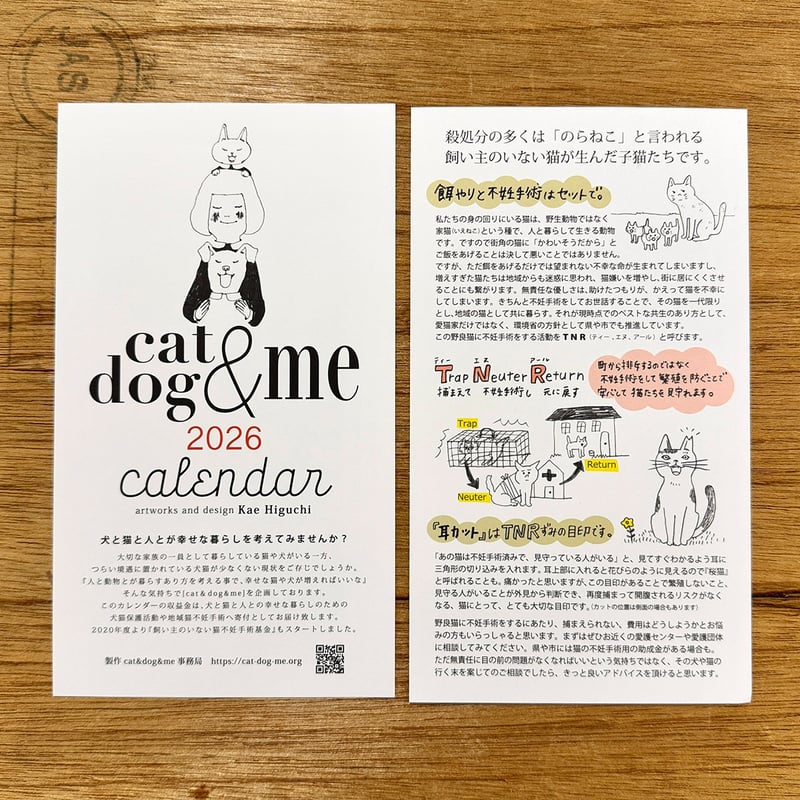 JAS
cat
dog & me
2026
calendar
artworks and design Kae Higuchi
犬と猫と人とが幸せな暮らしを考えてみませんか？
大切な家族の一員として暮らしている猫や犬がいる一方、
つらい境遇に置かれている犬猫が少なくない現状をご存じでしょうか。
「人と動物とが暮らすあり方を考える事で、幸せな猫や犬が増えればいいな」
そんな気持ちで[cat&dog&me]を企画しております。
このカレンダーの収益金は、犬と猫と人との幸せな暮らしのための
犬猫保護活動や地域猫不妊手術へ寄付としてお届け致します。
2020年度より『飼い主のいない猫不妊手術基金』もスタートしました。
製作 cat&dog&me 事務局 https://cat-dog-me.org
殺処分の多くは「のらねこ」と言われる
飼い主のいない猫が生んだ子猫たちです。
餌やりと不妊手術はセットで。
私たちの身の回りにいる猫は、野生動物ではなく
家猫(いえねこ)という種で、人と暮らして生きる動物
です。ですので街角の猫に「かわいそうだから」と
ご飯をあげることは決して悪いことではありません。
ですが、ただ餌をあげるだけでは望まれない不幸な命が生まれてしまいますし、
増えすぎた猫たちは地域からも迷惑に思われ、猫嫌いを増やし、街に居にくくさせ
ることにも繋がります。無責任な優しさは、助けたつもりが、かえって猫を不幸に
してしまいます。きちんと不妊手術をしてお世話することで、その猫を一代限り
とし、地域の猫として共に暮らす。それが現時点でのベストな共生のあり方として、
愛猫家だけではなく、環境省の方針として県や市でも推進しています。
この野良猫に不妊手術をする活動をTNR(ティー,エヌ,アール)と呼びます。
ティー エヌ アール
Trap Neuter Return
捕まえて 不妊手術し 元に戻す
町から排斥するのではなく
不妊手術をして繁殖を防ぐことで
安心して猫たちを見守れます。
Trap
Return
Neuter
『耳カット』はTNRずみの目印です。
「あの猫は不妊手術済みで、見守っている人がいる」と、見てすぐわかるよう耳に
三角形の切り込みを入れます。耳上部に入れると花びらのように見えるので『桜猫』
と呼ばれることも。痛かったと思いますが、この目印があることで繁殖しないこと、
見守る人がいることが外見から判断でき、再度捕まって開腹されるリスクがなく
なる、猫にとって、とても大切な目印です。(カットの位置は側面の場合もあります)
野良猫に不妊手術をするにあたり、捕まえられない、費用はどうしようかとお悩
みの方もいらっしゃると思います。まずはぜひお近くの愛護センターや愛護団体
に相談してみてください。県や市には猫の不妊手術用の助成金がある場合も。
ただ無責任に目の前の問題がなくなればいいという気持ちではなく、その犬や猫の
行く末を案じてのご相談でしたら、きっと良いアドバイスを頂けると思います。